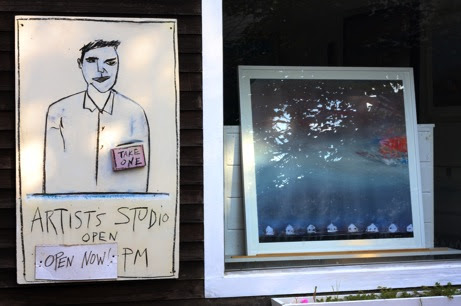 TAKE
ONE
ARTIST'S STUDIO
OPEN
OPEN NOW! PM